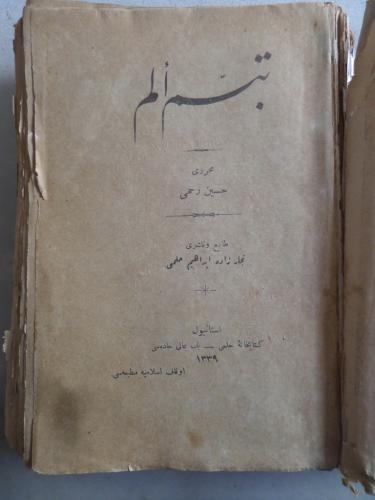 تبسّم ألم
محرری
حسین رحمی
طابع و ناشری
نجار زاده ابراهیم حلمی
استانبول
کتابخانهٔ حلمی — باب عالی جاده‌سی
١٣٣٩
اوقاف اسلامیه مطبعه‌سی